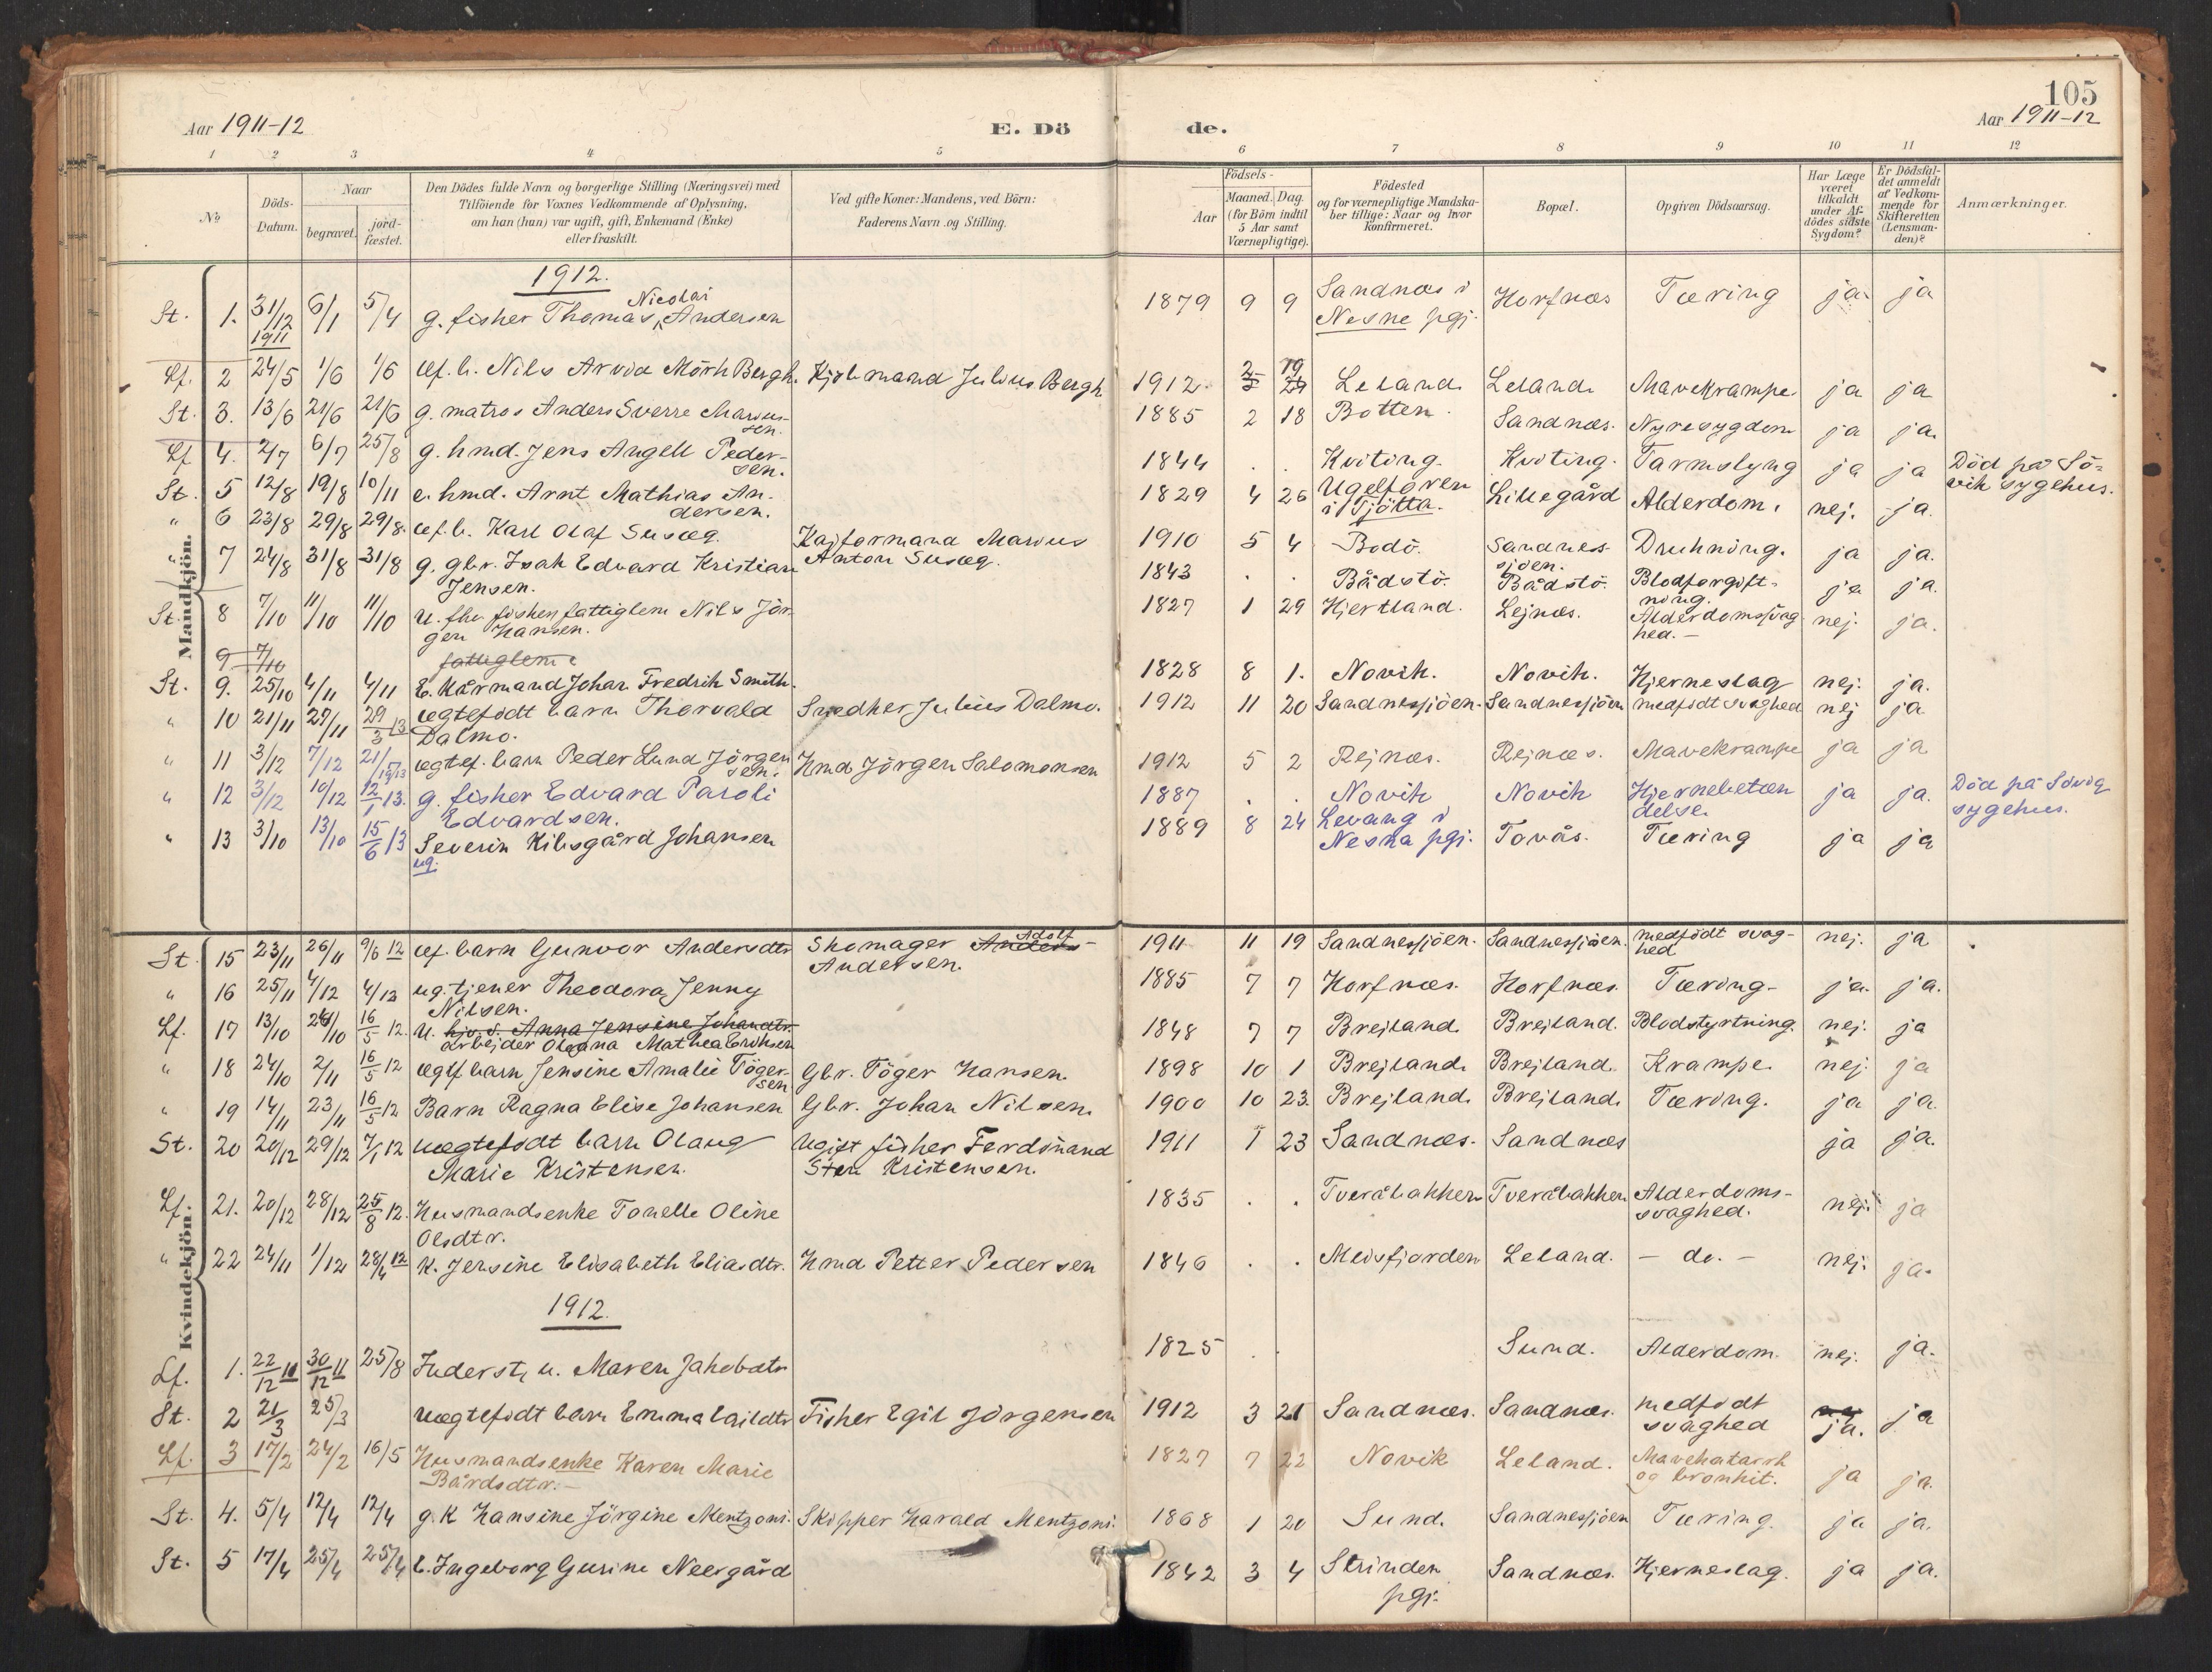 105
Aar 1911-12
E. Dö
de.
Aar 1911-12
1 2 3 4 5 6 7 8 9 10 11 12
No
Döds-Datum.
Naar
begravet.
jord-fæstet.
Den Dödes fulde Navn og borgerlige Stilling (Næringsvei) med
Tilföiende for Voxnes Vedkommende af Oplysning,
om han (hun) var ugift, gift, Enkemand (Enke)
eller fraskilt.
Ved gifte Koner: Mandens, ved Börn:
Faderens Navn og Stilling.
Födsels-
Aar
Maaned. Dag.
(for Börn indtil
5 Aar samt
Værnepligtige).
Födested
og for værnepligtige Mandska-
ber tillige: Naar og hvor
konfirmeret.
Bopæl.
Opgiven Dödsaarsag.
Har Læge
været
tilkaldt
under Af-
dödes sidste
Sygdom?
Er Dödsfal-
det anmeldt
af Vedkom-
mende for
Skifteretten
(Lensman-
den)?
Anmærkninger.
Mandkjön.
1912.
St. 1. 31/12 1911 6/1 5/4 g. fisker Thomas Nicolai Andersen 1879 9 9 Sandnæs i Nesne pgj. Horfnæs Tæring ja ja
Lf. 2 24/5 1/6 1/6 Nils Arvid Mörk Bergh. Kjøbmand Julius Bergh 1912 2 19 Leland Leland Mavekrampe ja ja
St. 3. 13/6 21/6 21/6 g. matros Anders Sverre Marius-sen. 1885 2 18 Botten. Sandnæs. Nyresygdom ja ja.
Lf 4. 2/7 6/7 25/8 g. hmd. Jens Angell Peder-sen. 1844 . . Kviting. Kviting. Tarmslyng ja ja Död på Sö-vik sygehus.
St. 5 12/8 19/8 10/11 e. hmd. Arnt Mathias An-dersen. 1829 4 26 i Tjötta. Lillegård Alderdom. nej. ja.
" 6 23/8 29/8 29/8. Karl Olaf Susæg. Kajformand Marius Anton Susæg. 1910 5 4 Bodö. Sandnes-sjöen. Drukning. ja ja.
" 7 24/8 31/8 31/8 g. gbr. Isak Edvard Kristian Jensen. 1843 . . Bådstö. Bådstö. Blodforgift-ning. ja ja.
St. 8 7/10 11/10 11/10 u. fhv. fisker, fattiglem Nils Jör-gen Hansen. 1827 1 29 Hjertland. Lejnæs. nej. ja.
9 7/10 fattiglem
St. 9. 25/10 4/11 4/11 E. Kårmand Johan Fredrik Smith. 1828 8 1. Novik. Novik. Hjerneslag nej. ja.
" 10 21/11 27/11 29/3 13 ægtefödt barn Thorvald Dalmo. Snedker Julius Dalmo. 1912 11 20 Sandnessjöen. Sandnessjöen medfödt svaghed nej ja.
" 11 3/12 7/12 ægtef. barn Peder Lund Jörgen sen. Hmd Jörgen Salomonsen 1912 5 2 Rejnæs. Rejnæs. Mavekrampe ja ja
" 12 3/12 10/12 12/1 13. g. fisker Edvard Paroli Edvardsen. 1887 . . Novik Novik Hjernebetændelse. ja ja. Död på Sövig sygehus.
" 13 3/10 13/10 15/6 13 Severin Kibsgård Johansen ug. 1889 8 24 Levang i Nesna pgj. Tovås. Tæring ja ja
Kvindekjön.
St. 15 23/11 26/11 9/6 12 Æf. barn Gunvor Andersdtr Skomager Anders Adolf Andersen. 1911 11 19 Sandnessjöen. Sandnessjöen. medfödt svag-hed nej. ja
" 16 25/11 4/12 4/12 ug. tjener Theodora Jenny Nilsen. 1885 7 7 Horfnæs. Horfnæs. Tæring. ja. ja.
Lf. 17 13/10 16/5 12. u. Anna Jensine Johansdtr. arbejder Oleana Mathea Eriksen 1848 7 7 Brejland. Brejland. Blodstyrtning. nej. ja
" 18 24/10 2/11 16/5 12 ægtf barn Jensine Amalie Töger-sen Gbr. Töger Hansen. 1898 10 1 Brejland. Brejland. Krampe. nej. ja
" 19 14/11 23/11 16/5 12 Barn Ragna Elise Johansen Gbr. Johan Nilsen. 1900 10 23 Brejland. Brejland. Tæring. ja ja.
St. 20 20/12 29/12 7/1 12 uægtefödt barn Olaug Marie Kristensen. Ugift fisker Ferdinand Sten Kristensen. 1911 1 23 Sandnæs. Sandnæs ja ja.
Lf. 21. 20/12 28/12 25/8 12. Husmandsenke Tonelle Oline Olsdtr. 1835 . . Tveråbakken Tveråbakken Alderdoms-svaghed. nej. ja
" 22 24/11 1/12 28/4 12 K. Jensine Elisabeth Eliasdtr. Hmd Petter Pedersen 1846 . . Meisfjorden Leland. - do. - nej. ja.
1912.
Lf. 1. 22/12 11 30/12 11 25/8 Inderst, u. Maren Jakobdtr 1825 . . Sund. Alderdom. nej. ja.
St. 2 21/3 25/3 uægtefödt barn Emma Fisker Egil Jörgensen 1912 3 21 Sandnæs. Sandnæs. medfödt svaghed ja. ja
Lf. 3 17/2 24/2 16/5 Husmandsenke Karen Marie Bårdsdtr. - 1827 7 22 Novik Leland. Mavekatarrh og bronkit. ja ja.
St. 4. 5/4 12/4 12/4 g. K Hansine Jörgine Mentzoni. Skipper Harald Mentzoni. 1868 1 20 Sund. Sandnessjöen Tæring. ja ja.
St. 5 17/4 25/4 25/4 E. Ingeborg Gurine Neergård 1842 3 4 Strinden pgj. Sandnæs. Hjerneslag. ja ja.